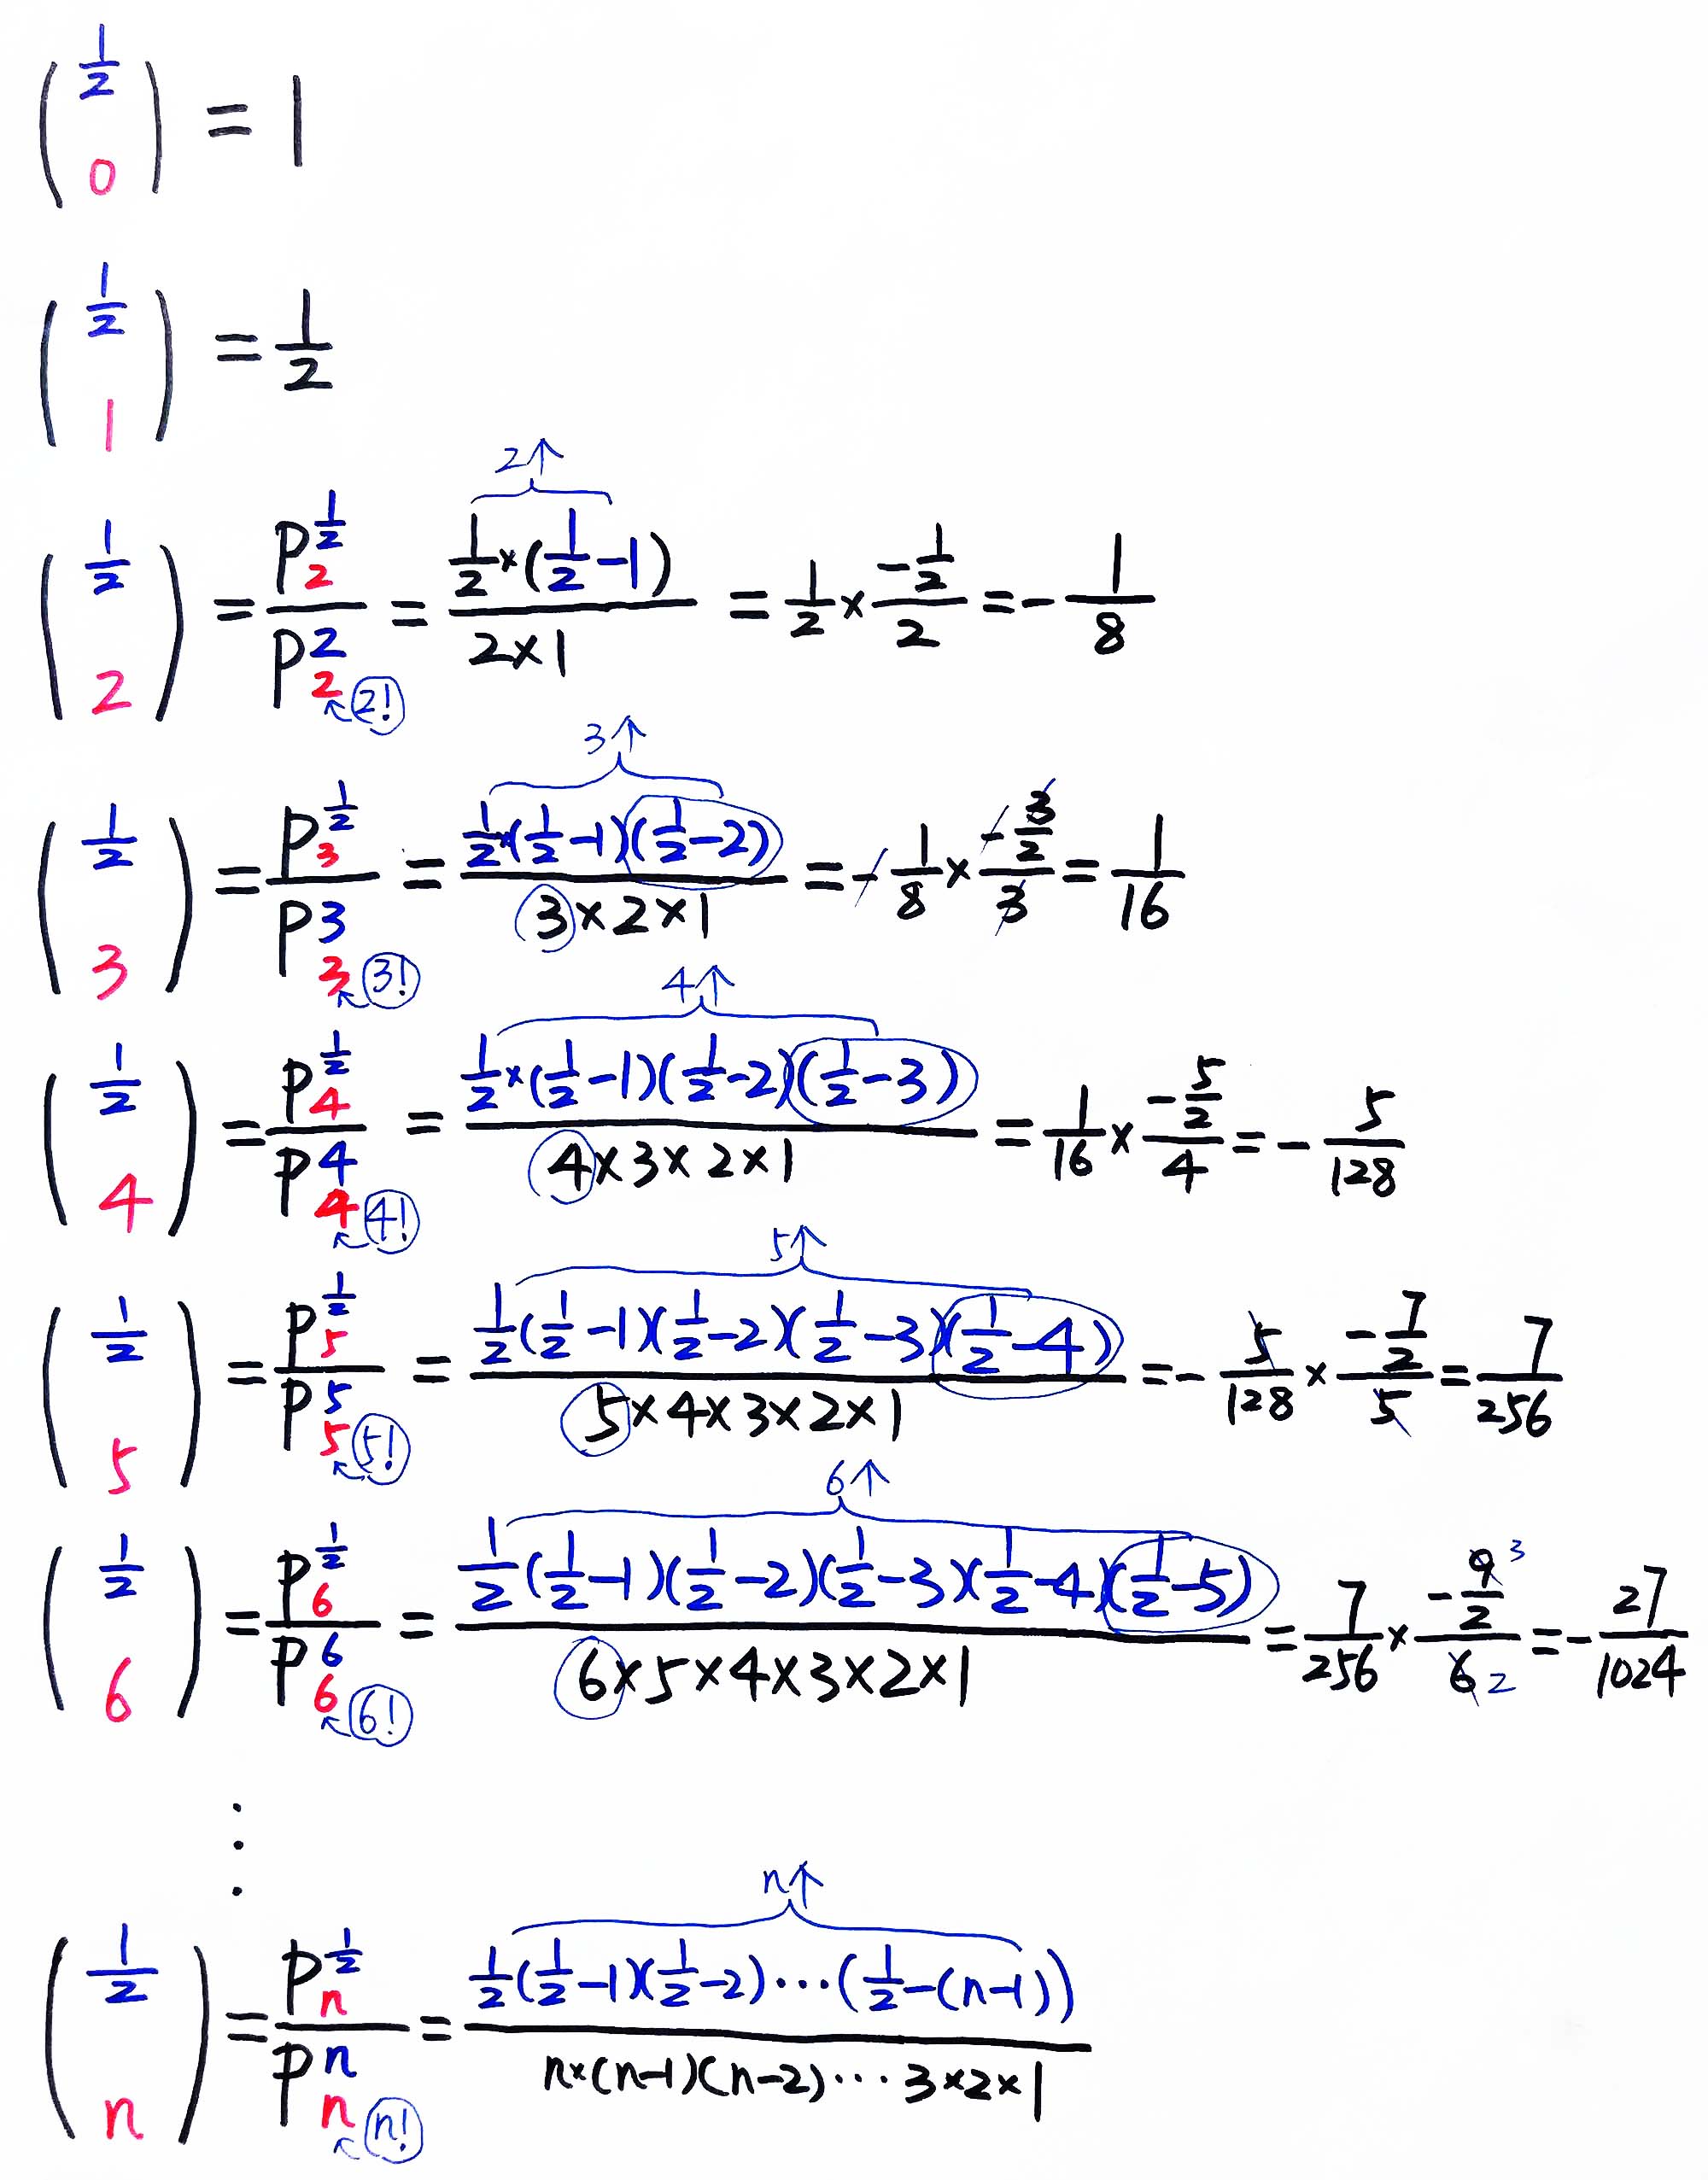 (1/2 0) = 1
(1/2 1) = 1/2
2个
(1/2 2) = P^(1/2)_2 / P^2_2 = (1/2 × (1/2 − 1)) / (2×1) = 1/2 × (−1/2)/2 = −1/8
2!
3个
(1/2 3) = P^(1/2)_3 / P^3_3 = (1/2 × (1/2 − 1)(1/2 − 2)) / (3×2×1) = −1/8 × (−3/2)/3 = 1/16
3!
4个
(1/2 4) = P^(1/2)_4 / P^4_4 = (1/2 × (1/2 − 1)(1/2 − 2)(1/2 − 3)) / (4×3×2×1) = 1/16 × (−5/2)/4 = −5/128
4!
5个
(1/2 5) = P^(1/2)_5 / P^5_5 = (1/2 (1/2 − 1)(1/2 − 2)(1/2 − 3)(1/2 − 4)) / (5×4×3×2×1) = −5/128 × (−7/2)/5 = 7/256
5!
6个
(1/2 6) = P^(1/2)_6 / P^6_6 = (1/2 (1/2 − 1)(1/2 − 2)(1/2 − 3)(1/2 − 4)(1/2 − 5)) / (6×5×4×3×2×1) = 7/256 × (−9/2)/6 = −27/1024
3
2
6!
⋮
n个
(1/2 n) = P^(1/2)_n / P^n_n = (1/2 (1/2 − 1)(1/2 − 2)⋯(1/2 − (n−1))) / (n×(n−1)(n−2)⋯3×2×1)
n!